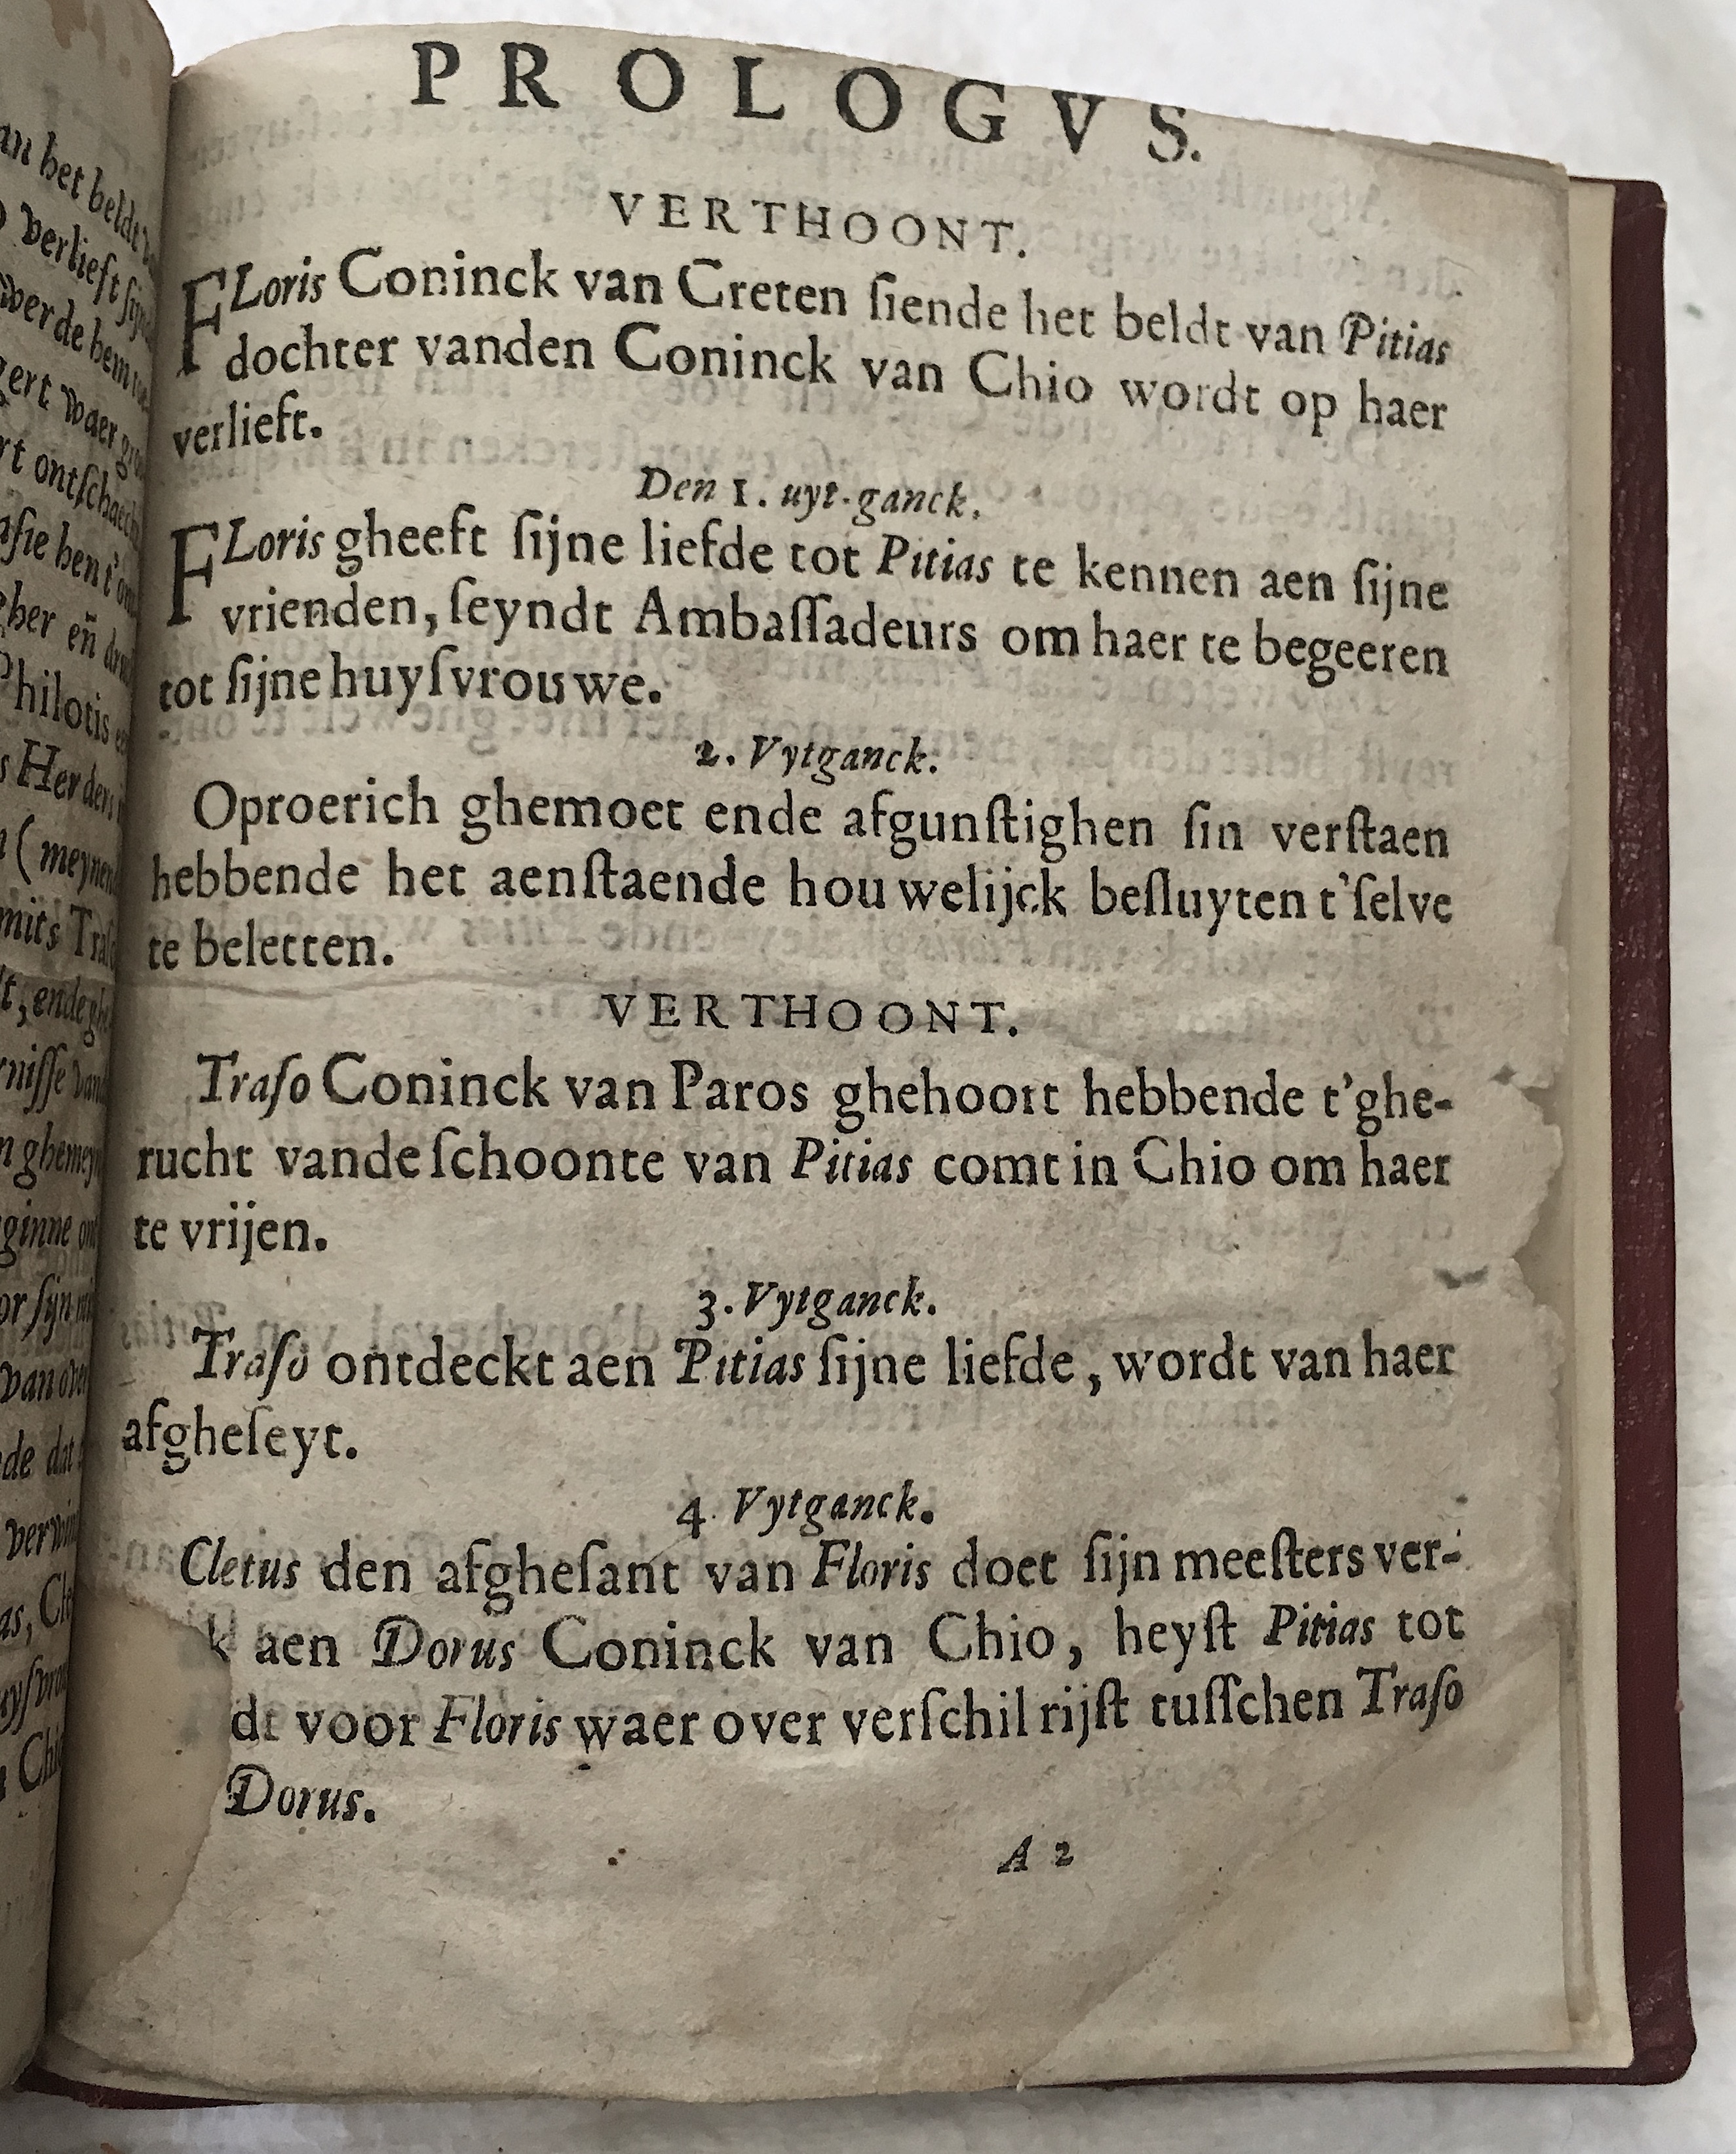 PROLOGVS.
VERTHOONT.
FLoris Coninck van Creten ſiende het beldt van Pitias
dochter vanden Coninck van Chio wordt op haer
verlieft.
Den 1. uyt-ganck.
FLoris gheeft ſijne liefde tot Pitias te kennen aen ſijne
vrienden, ſeyndt Ambaſſadeurs om haer te begeeren
tot ſijne huyſvrouwe.
2. Vytganck.
Oproerich ghemoet ende afgunſtighen ſin verſtaen
hebbende het aenſtaende houwelijck beſluyten t'ſelve
te beletten.
VERTHOONT.
Traſo Coninck van Paros ghehoort hebbende t'ghe-
rucht vande ſchoonte van Pitias comt in Chio om haer
te vrijen.
3. Vytganck.
Traſo ontdeckt aen Pitias ſijne liefde, wordt van haer
afgheſeyt.
4. Vytganck.
Cletus den afgheſant van Floris doet ſijn meeſters ver-
k aen Dorus Coninck van Chio, heyſt Pitias tot
dt voor Floris waer over verſchil rijſt tuſſchen Traſo
Dorus.
A 2